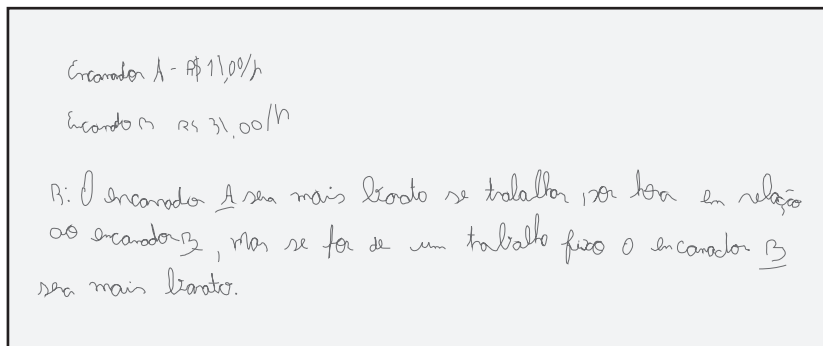 Encanador A - R$ 11,00/h
Encando B R$ 31,00/h
R: O encanador A sera mais barato se trabalhar por hora em relação
ao encanador B, mas se for de um trabalho fixo o encanador B
sera mais barato.